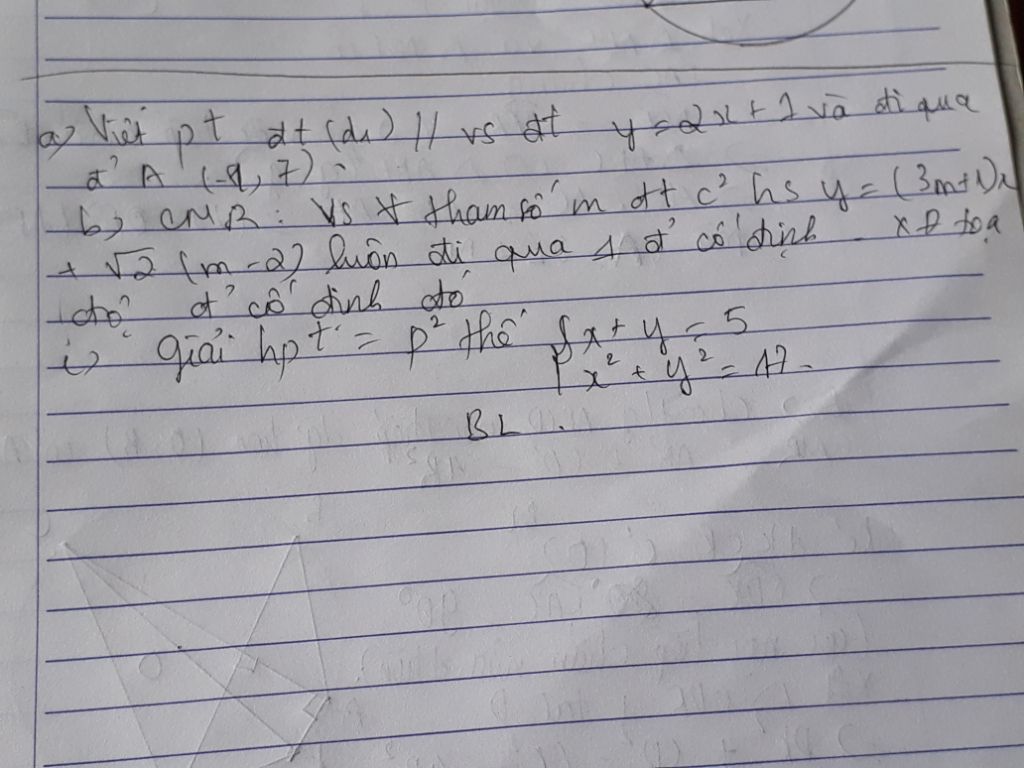 a) Viết pt đt (d1) // vs đt y = 2x + 1 và đi qua
đ' A (-1, 7) :
b, CMR : Vs ∀ tham số m đt c² hs y = (3m+1)x
+ √2 (m - 2) luôn đi qua 1 đ' cố định. XĐ tọa
độ đ' cố định đó
i, Giải hpt = p² thế { x + y = 5
x² + y² = 17.
BL.